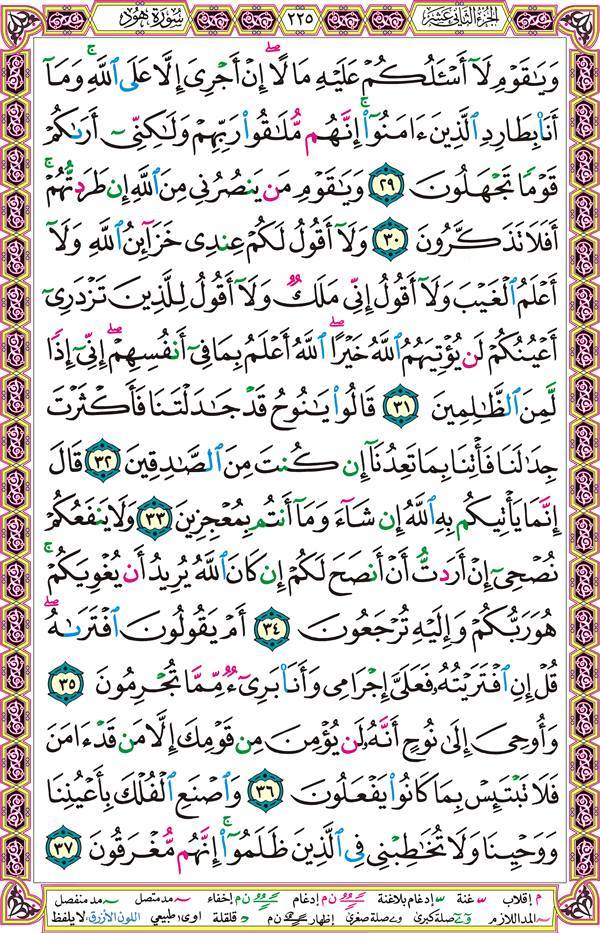 الجزء الثاني عشر
٢٢٥
سورة هود
وَيَٰقَوْمِ لَآ أَسْـَٔلُكُمْ عَلَيْهِ مَالًا ۖ إِنْ أَجْرِىَ إِلَّا عَلَى ٱللَّهِ ۚ وَمَآ
أَنَا۠ بِطَارِدِ ٱلَّذِينَ ءَامَنُوٓا۟ ۚ إِنَّهُم مُّلَٰقُوا۟ رَبِّهِمْ وَلَٰكِنِّىٓ أَرَىٰكُمْ
قَوْمًا تَجْهَلُونَ ٢٩ وَيَٰقَوْمِ مَن يَنصُرُنِى مِنَ ٱللَّهِ إِن طَرَدتُّهُمْ ۚ
أَفَلَا تَذَكَّرُونَ ٣٠ وَلَآ أَقُولُ لَكُمْ عِندِى خَزَآئِنُ ٱللَّهِ وَلَآ
أَعْلَمُ ٱلْغَيْبَ وَلَآ أَقُولُ إِنِّى مَلَكٌ وَلَآ أَقُولُ لِلَّذِينَ تَزْدَرِىٓ
أَعْيُنُكُمْ لَن يُؤْتِيَهُمُ ٱللَّهُ خَيْرًا ۖ ٱللَّهُ أَعْلَمُ بِمَا فِىٓ أَنفُسِهِمْ ۖ إِنِّىٓ إِذًا
لَّمِنَ ٱلظَّٰلِمِينَ ٣١ قَالُوا۟ يَٰنُوحُ قَدْ جَٰدَلْتَنَا فَأَكْثَرْتَ
جِدَٰلَنَا فَأْتِنَا بِمَا تَعِدُنَآ إِن كُنتَ مِنَ ٱلصَّٰدِقِينَ ٣٢ قَالَ
إِنَّمَا يَأْتِيكُم بِهِ ٱللَّهُ إِن شَآءَ وَمَآ أَنتُم بِمُعْجِزِينَ ٣٣ وَلَا يَنفَعُكُمْ
نُصْحِىٓ إِنْ أَرَدتُّ أَنْ أَنصَحَ لَكُمْ إِن كَانَ ٱللَّهُ يُرِيدُ أَن يُغْوِيَكُمْ ۚ
هُوَ رَبُّكُمْ وَإِلَيْهِ تُرْجَعُونَ ٣٤ أَمْ يَقُولُونَ ٱفْتَرَىٰهُ ۖ
قُلْ إِنِ ٱفْتَرَيْتُهُۥ فَعَلَىَّ إِجْرَامِى وَأَنَا۠ بَرِىٓءٌ مِّمَّا تُجْرِمُونَ ٣٥
وَأُوحِىَ إِلَىٰ نُوحٍ أَنَّهُۥ لَن يُؤْمِنَ مِن قَوْمِكَ إِلَّا مَن قَدْ ءَامَنَ
فَلَا تَبْتَئِسْ بِمَا كَانُوا۟ يَفْعَلُونَ ٣٦ وَٱصْنَعِ ٱلْفُلْكَ بِأَعْيُنِنَا
وَوَحْيِنَا وَلَا تُخَٰطِبْنِى فِى ٱلَّذِينَ ظَلَمُوٓا۟ ۚ إِنَّهُم مُّغْرَقُونَ ٣٧
م إقلاب غنة إدغام بلاغنة ن م إدغام ن م إخفاء مد متصل مد منفصل
المد اللازم صلة كبرى صلة صغرى إظهار ن م قلقلة اوى طبيعي اللون الأزرق: لا يلفظ